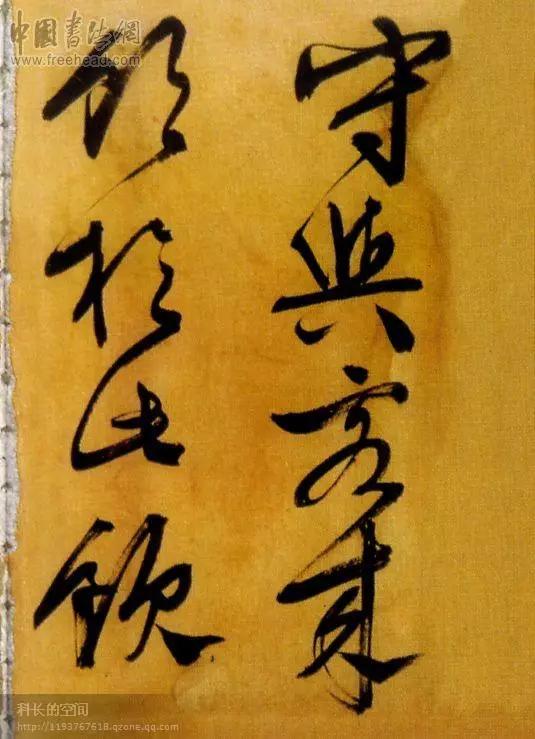 守與客來
飲於此飲
中國書法網
www.freehead.com
科长的空间
http://1193767618.qzone.qq.com